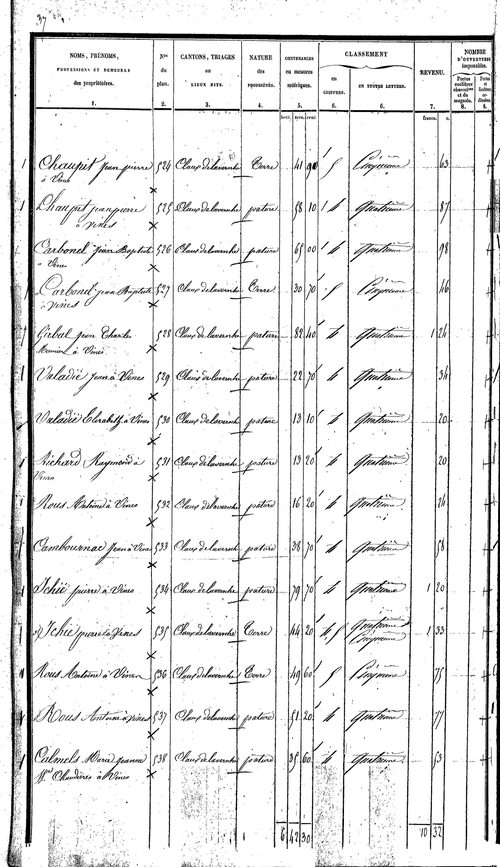 37
NOMS, PRÉNOMS, PROFESSIONS ET DEMEURE des propriétaires. 1. | Nos du plan. 2. | CANTONS, TRIAGES ou LIEUX DITS. 3. | NATURE des PROPRIÉTÉS. 4. | CONTENANCES en mesures métriques. 5. | CLASSEMENT en CHIFFRES. 6. | EN TOUTES LETTRES. 6. | REVENU. 7. | NOMBRE D'OUVERTURES imposables. 8.
hect. ares. cent. francs. c.
Chaupit Jean pierre à Vines 524 Claux de lavernhe Terre 41 90 5 Cinquième 63
Chaupit jean pierre à Vines 525 Claux de lavernhe pature 58 10 4 Quatrième 87
Carbonel Jean Baptiste à Vines 526 Claux de lavernhe pature 65 00 4 Quatrième 98
Carbonel jean Baptiste à Vines 527 Claux de lavernhe Terre 30 70 5 Cinquième 46
Girbal Jean Charles à Vines 528 Claux de lavernhe pature 82 40 4 Quatrième 1 24
Valadié Jean à Vines 529 Claux de lavernhe pature 22 70 4 Quatrième 34
Valadié Elizabeth à Vines 530 Claux de lavernhe pature 13 10 4 Quatrième 20
Richard Raymond à Vines 531 Claux de lavernhe pature 13 20 4 Quatrième 20
Rous Antoine à Vines 532 Claux de lavernhe pature 16 20 4 Quatrième 24
Cambournac Jean à Vines 533 Claux de lavernhe pature 38 70 4 Quatrième 58
Ichié pierre à Vines 534 Claux de lavernhe pature 79 70 4 Quatrième 1 20
Ichié pierre à Vines 535 Claux de lavernhe Terre 44 20 4 5 Quatrième Cinquième 1 33
Rous Antoine à Vines 536 Claux de lavernhe Terre 49 60 5 Cinquième 75
Rous Antoine à Vines 537 Claux de lavernhe pature 51 20 4 Quatrième 77
Calmels Marie Jeanne Vve Chaudières à Vines 538 Claux de lavernhe pature 35 60 4 Quatrième 53
6 42 30 10 32